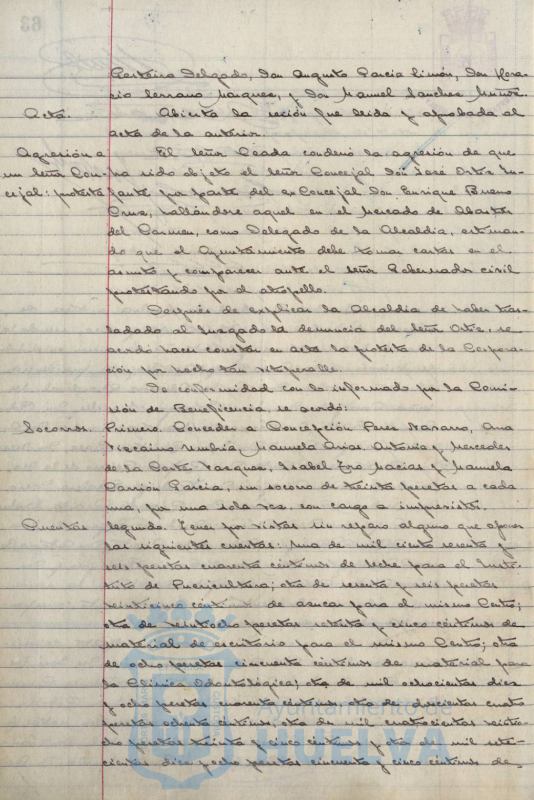 Garteiro Delgado, Don Augusto García Limón, Don Hora-
cio Serrano Marquez, y Don Manuel Sanchez Muñoz.
Acta. Abierta la sesión fue leida y aprobada al
acta de la anterior.
Agresión a El Señor Ceada condenó la agresión de que
un Señor Con- ha sido objeto el Señor Concejal don José Ortiz In-
cejal: protesta fante por parte del ex-Concejal Don Enrique Bueno
Cruz, hallándose aquel en el Mercado de Abastos
del Carmen, como Delegado de la Alcaldia, estiman-
do que el Ayuntamiento debe tomar cartas en el
asunto y comparecer ante el Señor Gobernador civil
protestando por el atropello.
Después de explicar la Alcaldia de haber tras-
ladado al Juzgado la denuncia del Señor Ortiz, se
acordó hacer constar en acta la protesta de la Corpora-
ción por hecho tan vituperable.
De conformidad con lo informado por la Comi-
sión de Beneficencia, se acordó:
Socorros. Primero. Conceder a Concepción Perez Navarro, Ana
Vizcaino Umbria, Manuela Arias, Antonia y Mercedes
de la Corte Vazquez, Isabel Toro Macias y Manuela
Carrión García, un socorro de treinta pesetas a cada
una, por una sola vez, con cargo a imprevistos.
Cuentas Segundo. Tener por vistas sin reparo alguno que oponer
las siguientes cuentas: Una de mil ciento sesenta y
seis pesetas cuarenta céntimos de leche para el Insti-
tuto de Puericultura; otra de sesenta y seis pesetas
veinticinco céntimos de azucar para el mismo Centro;
otra de veintiocho pesetas setenta y cinco céntimos de
material de escritorio para el mismo Centro; otra
de ocho pesetas cincuenta céntimos de material para
la Clínica Odontológica; otra de mil ochocientas diez
y ocho pesetas noventa céntimos otra de seiscientas cuatro
pesetas ochenta céntimos, otra de mil cuatrocientas veintio-
cho pesetas treinta y cinco céntimos y otra de mil sete-
cientas diez y ocho pesetas cincuenta y cinco céntimos de-
Ayuntamiento de
HUELVA